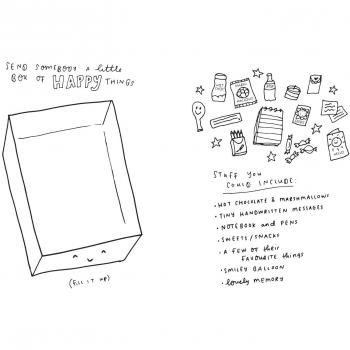 SEND SOMEBODY a little
BOX OF HAPPY THINGS
(FILL IT UP)
STUFF YOU
COULD INCLUDE:
• HOT CHOCOLATE & MARSHMALLOWS
• TINY HANDWRITTEN MESSAGES
• NOTEBOOK and PENS
• SWEETS/SNACKS
• A FEW OF THEIR
FAVOURITE THINGS
• SMILEY BALLOON
• lovely MEMORY